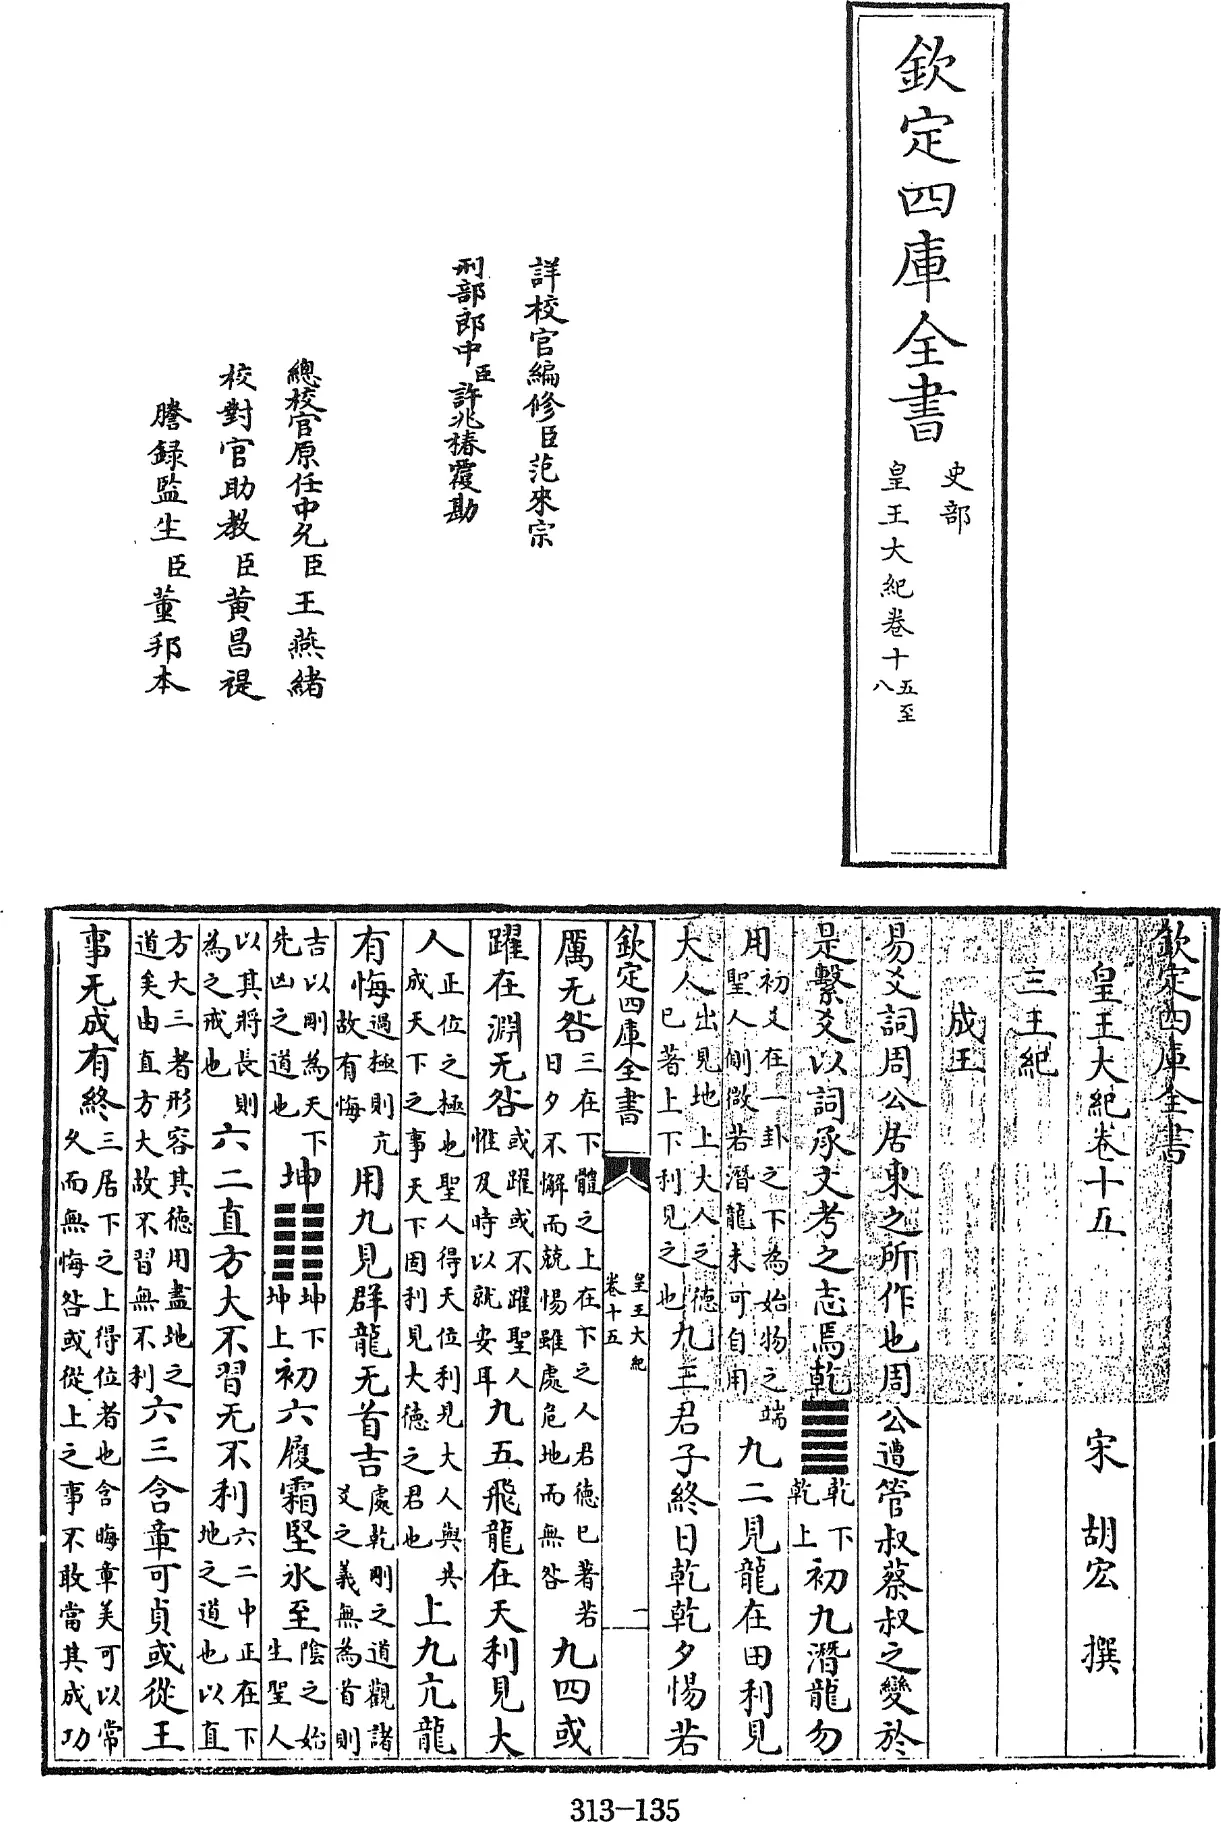 欽定四庫全書
史部
皇王大紀卷十五至八
詳校官編修臣范來宗
刑部郎中臣許兆椿覆勘
總校官原任中允臣王燕緒
校對官助教臣黃昌禔
謄錄監生臣董邦本
欽定四庫全書
皇王大紀卷十五 宋 胡宏 撰
三王紀
成王
易爻詞周公居東之所作也周公遭管叔蔡叔之變於
是繫爻以詞承文考之志焉乾䷀乾下乾上初九潛龍勿
用初爻在一卦之下為始物之端聖人側微若潛龍未可自用九二見龍在田利見
大人出見地上大人之德已著上下利見之也九三君子終日乾乾夕惕若
欽定四庫全書 皇王大紀卷十五 二
厲无咎三在下體之上在下之人君德已著若日夕不懈而兢惕雖處危地而無咎九四或
躍在淵无咎或躍或不躍聖人惟及時以就安耳九五飛龍在天利見大
人正位之極也聖人得天位利見大人與共成天下之事天下固利見大德之君也上九亢龍
有悔過極則亢故有悔用九見群龍无首吉處乾剛之道觀諸爻之義無為首則
吉以剛為天下先凶之道也坤䷁坤下坤上初六履霜堅氷至陰之始生聖人
以其將長則為之戒也六二直方大不習无不利六二中正在下地之道也以直
方大三者形容其德用盡地之道矣由直方大故不習無不利六三含章可貞或從王
事无成有終三居下之上得位者也含晦章美可以常久而無悔咎或從上之事不敢當其成功
313-135